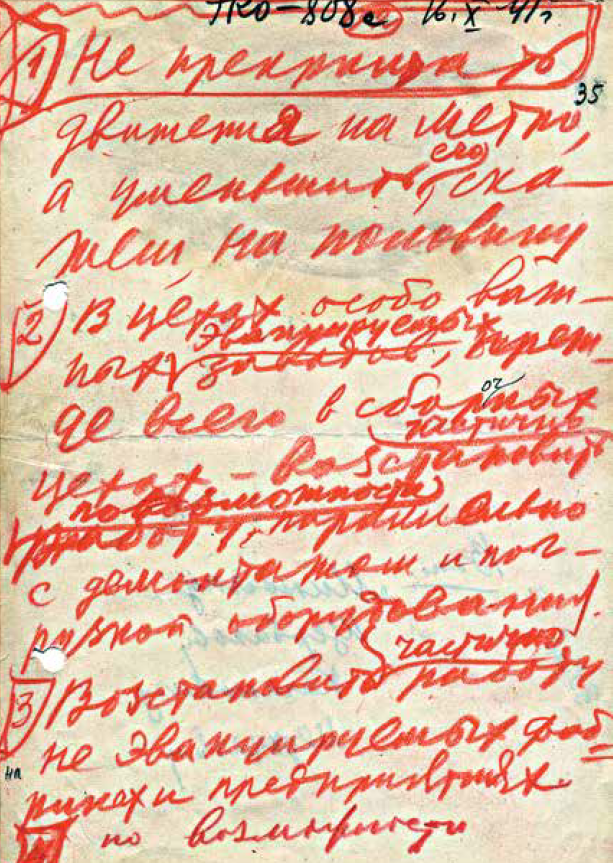 ГКО-808с 16.X 41г
1) Не прекращать
35
движения на метро,
а уменьшить его, ска-
жем, на половину
2) В цехах особо важ-
эвакуируемых
ных заводов, преж-
де всего в сборочных
частично
цехах – восстановить
по возможности
работу, параллельно
с демонтажем и пог-
рузкой оборудования.
частично
3) Восстановить работу
не эвакуируемых фаб-
на
риках и предприятиях
по возможности